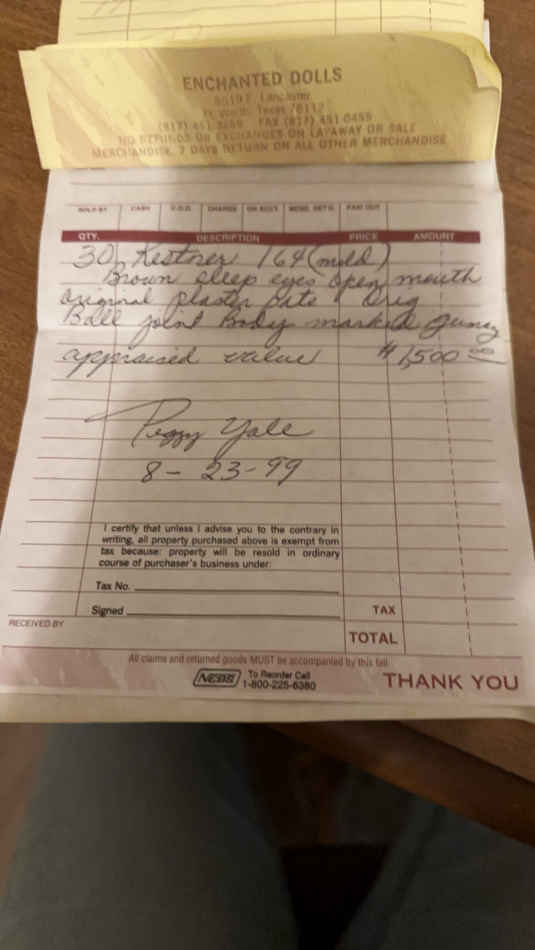 ENCHANTED DOLLS
Lancaster
Ft. Worth, Texas 76112
FAX (817) 451-0455
NO REFUNDS OR EXCHANGES ON LAYAWAY OR SALE
MERCHANDISE, 7 DAYS RETURN ON ALL OTHER MERCHANDISE
SOLD BY CASH C.O.D. CHARGE ON ACCT. MDSE. RET'D PAID OUT
QTY. DESCRIPTION PRICE AMOUNT
30 Kestner 164 (mold)
Brown sleep eyes open mouth
original plaster pate Orig
Ball joint Body marked
appraised value $1,500 00
Peggy Yale
8-23-99
I certify that unless I advise you to the contrary in
writing, all property purchased above is exempt from
tax because: property will be resold in ordinary
course of purchaser's business under:
Tax No.
Signed TAX
RECEIVED BY
TOTAL
All claims and returned goods MUST be accompanied by this bill
NEBS To Reorder Call
1-800-225-6380
THANK YOU